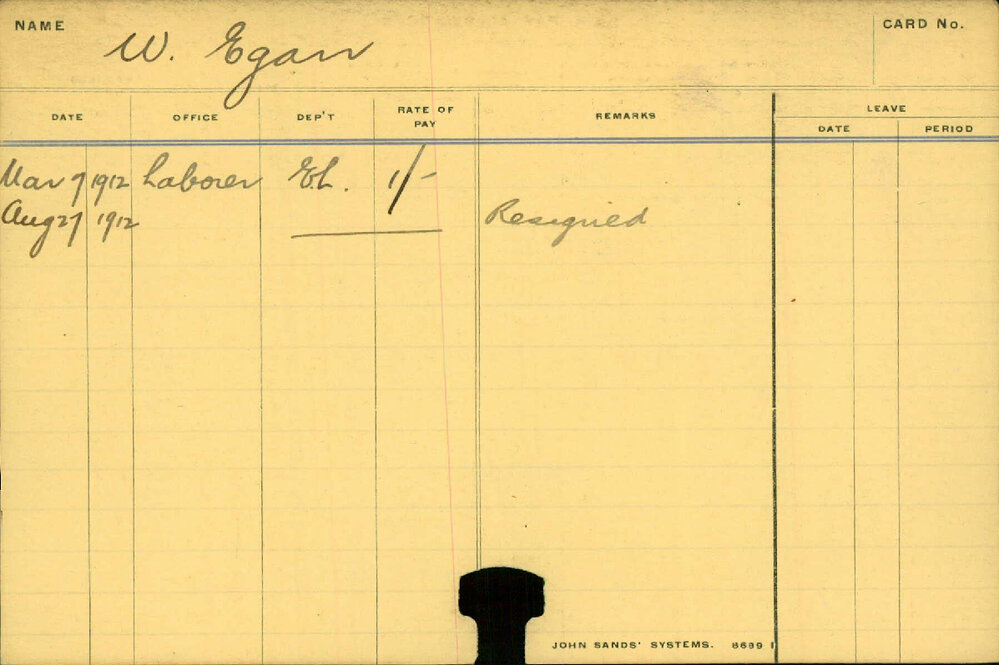 NAME W. Egan CARD No.
DATE OFFICE DEP'T RATE OF PAY REMARKS LEAVE
DATE PERIOD
Mar 7 1912 Laborer EL. 1/-
Aug 27 1912 Resigned
JOHN SANDS' SYSTEMS. 8699 1